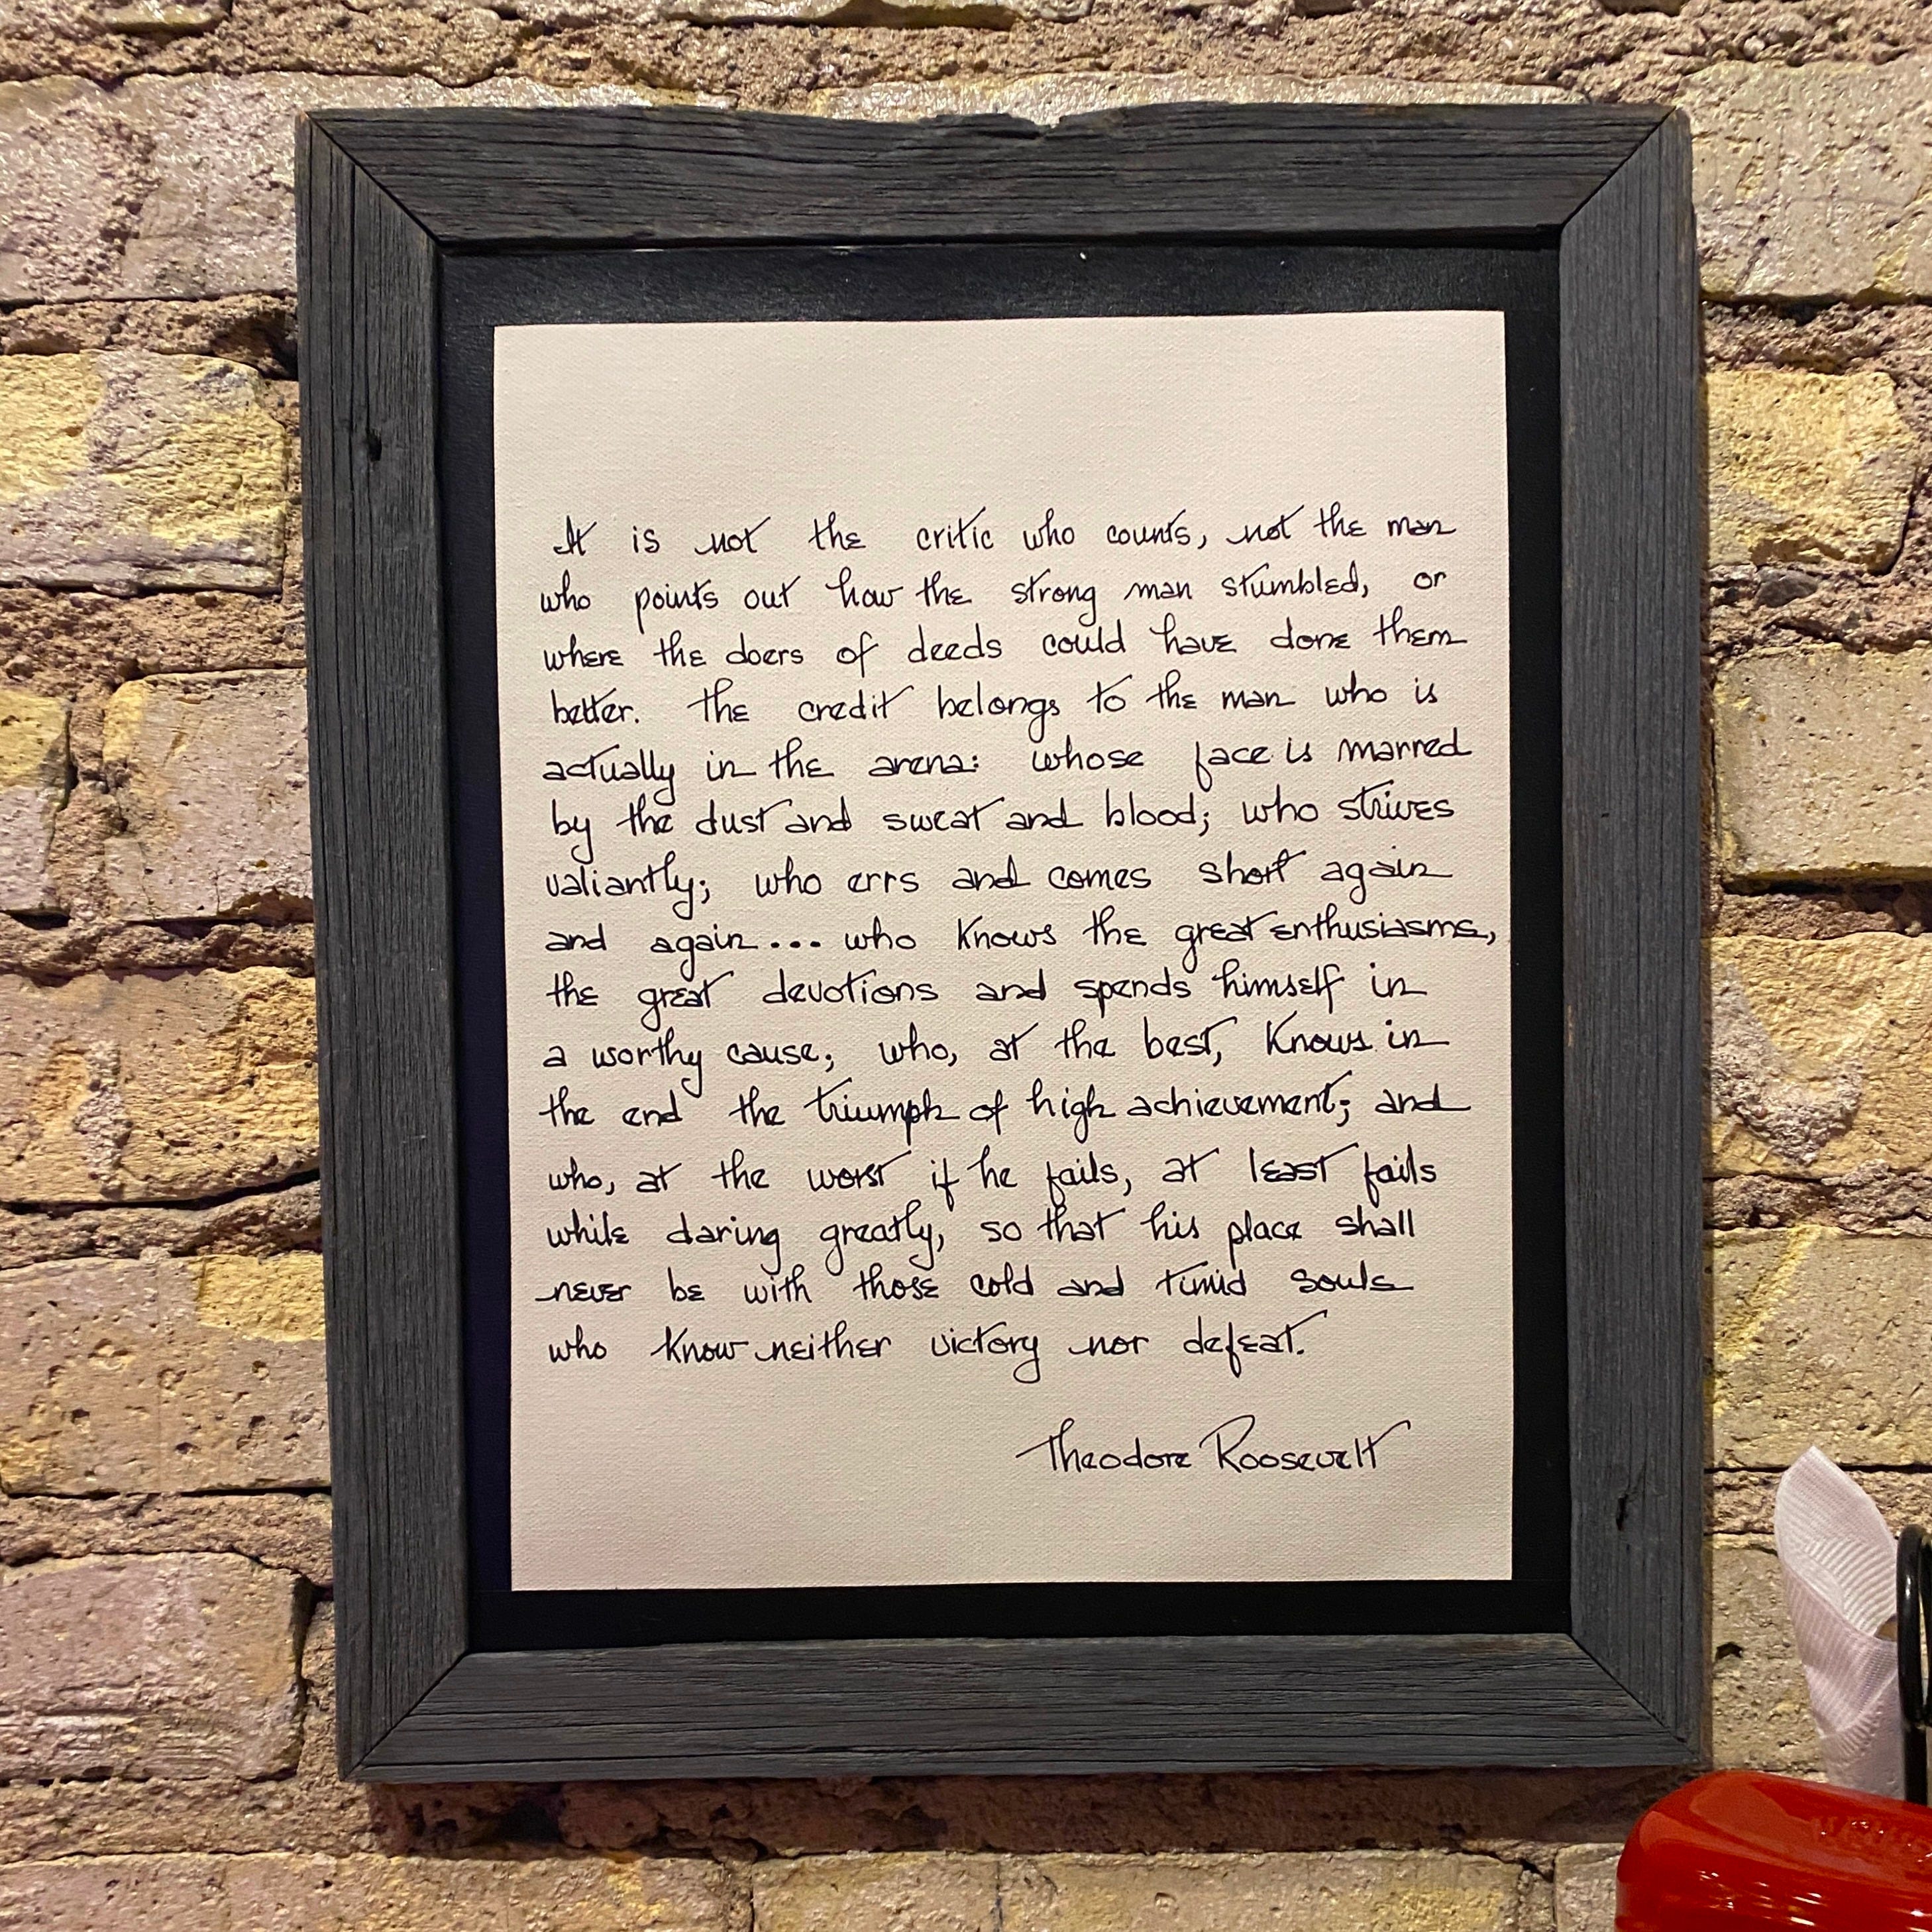 It is not the critic who counts, not the man
who points out how the strong man stumbled, or
where the doers of deeds could have done them
better. The credit belongs to the man who is
actually in the arena: whose face is marred
by the dust and sweat and blood; who strives
valiantly; who errs and comes short again
and again... who knows the great enthusiasms,
the great devotions and spends himself in
a worthy cause; who, at the best, knows in
the end the triumph of high achievement; and
who, at the worst if he fails, at least fails
while daring greatly, so that his place shall
never be with those cold and timid souls
who know neither victory nor defeat.
Theodore Roosevelt